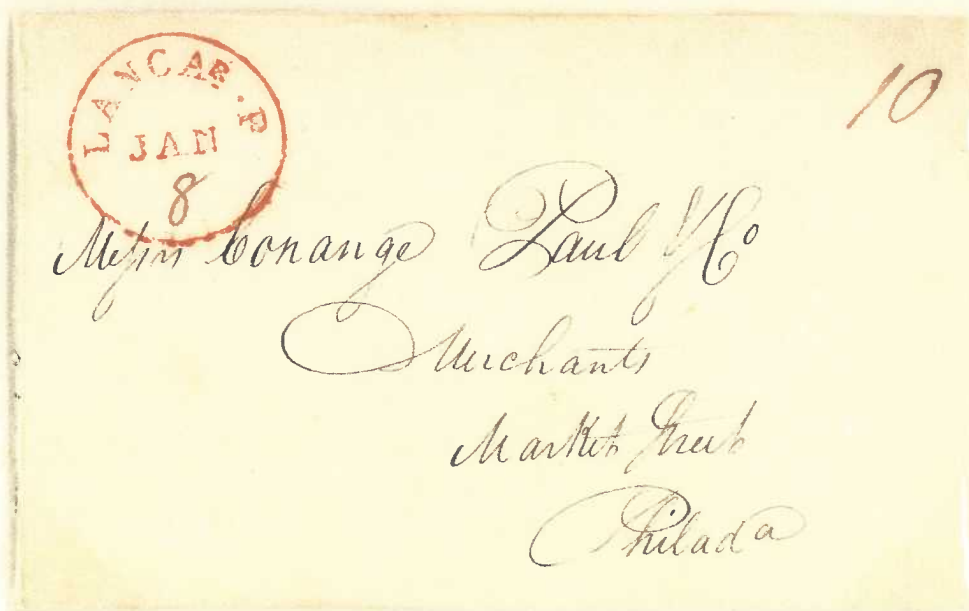 LANCAR. P
JAN
8
10
Messrs Conange Paul & Co
Merchants
Market Street
Philada